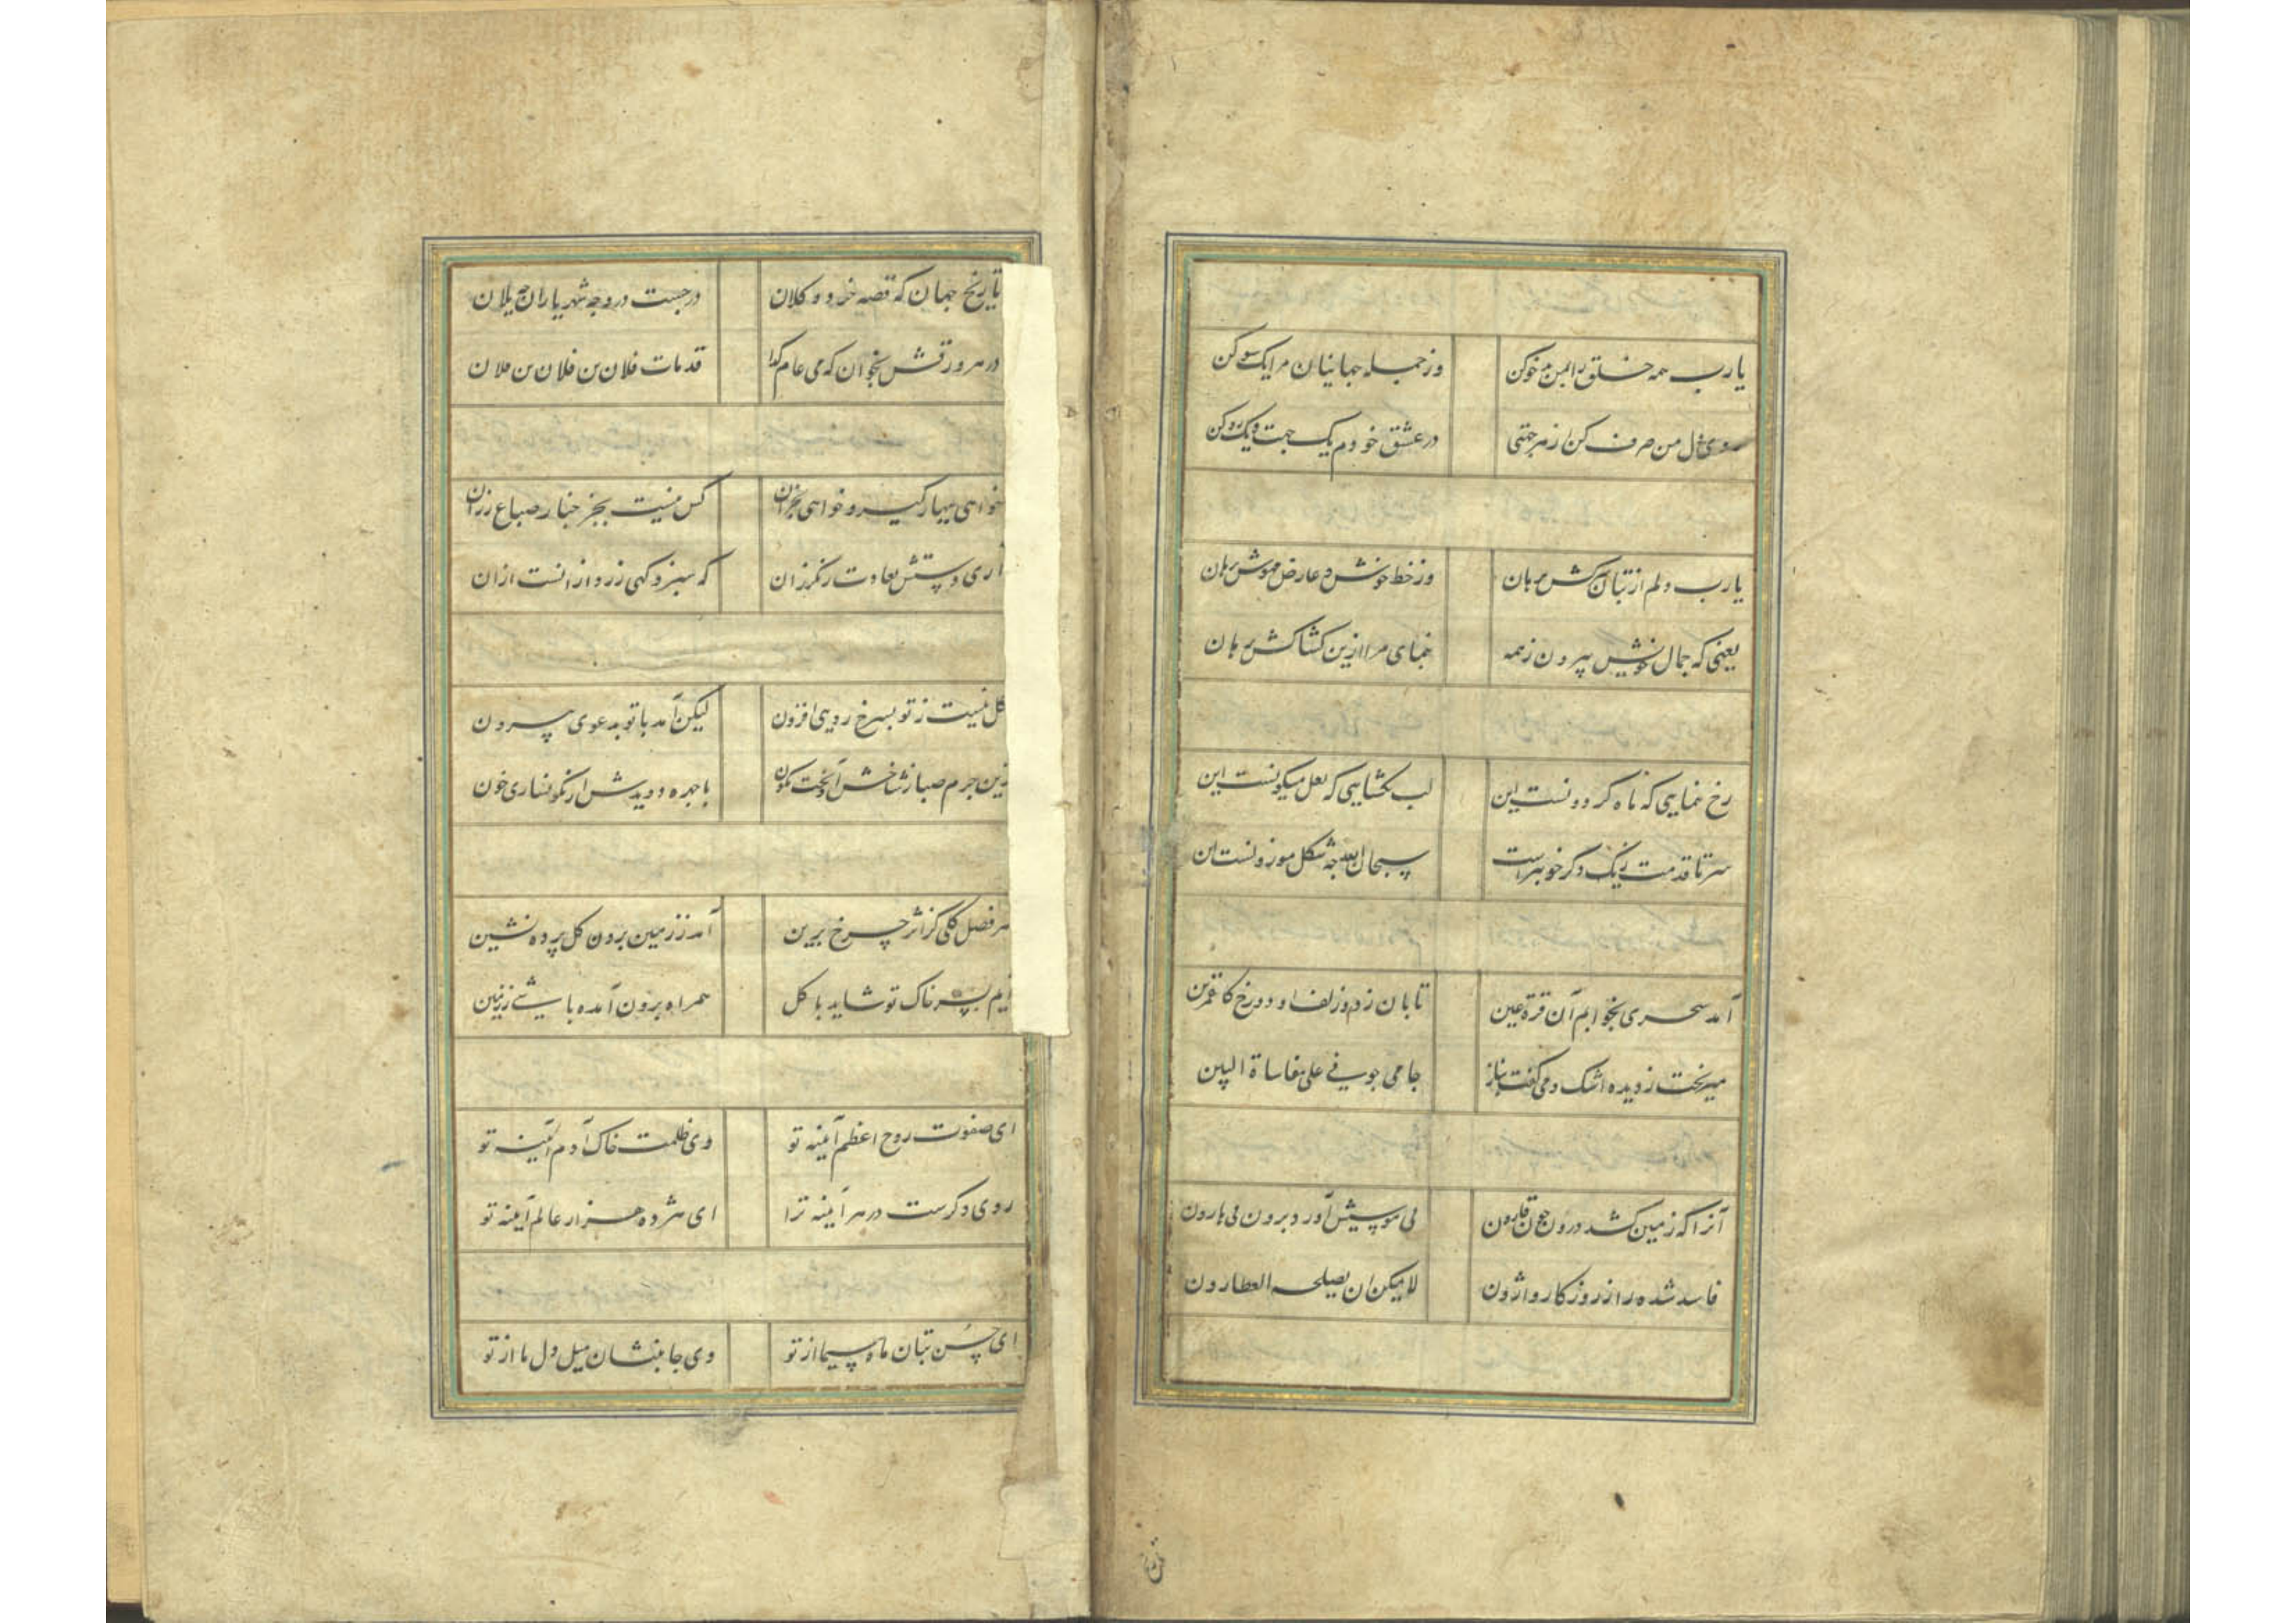 یارب همه خلق را بمن بدخو کن وز جمله جهانیان مرا یکسو کن
روی دل من صرف کن از هر جهتی در عشق خودم یک جهت و یکرو کن
یارب دلم از بتان سرکش برهان وز خط خوش و عارض مهوش برهان
یعنی که جمال خویش بیرون ز همه بنمای مرا ازین کشاکش برهان
رخ بنمایی که ماه کردونست این لب بکشایی که لعل میکونست این
سر تا قدمت زیک دکر خوبتر است سبحان الله چه شکل موزونست این
آمد سحری بخوابم آن قرة عین تابان ز دو زلف او دو رخ کالقمرین
میریخت ز دیده اشک و می کفت بناز جامی جویی علی مقاساة البین
آنرا که زمین کشد درون چون قارون نی موسیش آورد برون نی هارون
فاسد شده را ز روزکار واژون لا یمکن ان یصلحه العطارون
تاریخ جهان که قصه خرد و کلان درجست درو چه شهریاران چه یلان
در هر ورقش بخوان که فی عام کذا قد مات فلان بن فلان بن فلان
خواهی ببهار کیر و خواهی بخزان کس نیست بجز خبار صباغ رزان
آری دستش بعادت رنکرزان که سبز و کهی زرد ازانست ازان
کل نیست ز تو بسرخ رویی افزون لیکن آمد با تو بدعوی بیرون
زین جرم صبا ز شاخش آویخت نکون با چهره دویدش از نکونساری خون
هر فصل کلی کز اثر چرخ برین آمد ز زمین برون کل پرده نشین
آیم بسر خاک تو شاید با کل همراه برون آمده باشی ز زمین
ای صفوت روح اعظم آینه تو وی ظلمت خاک آدم آینه تو
روی دکرست در هر آینه ترا ای هژده هزار عالم آینه تو
ای حسن بتان ماه سیما از تو وی جانبشان میل دل ما از تو